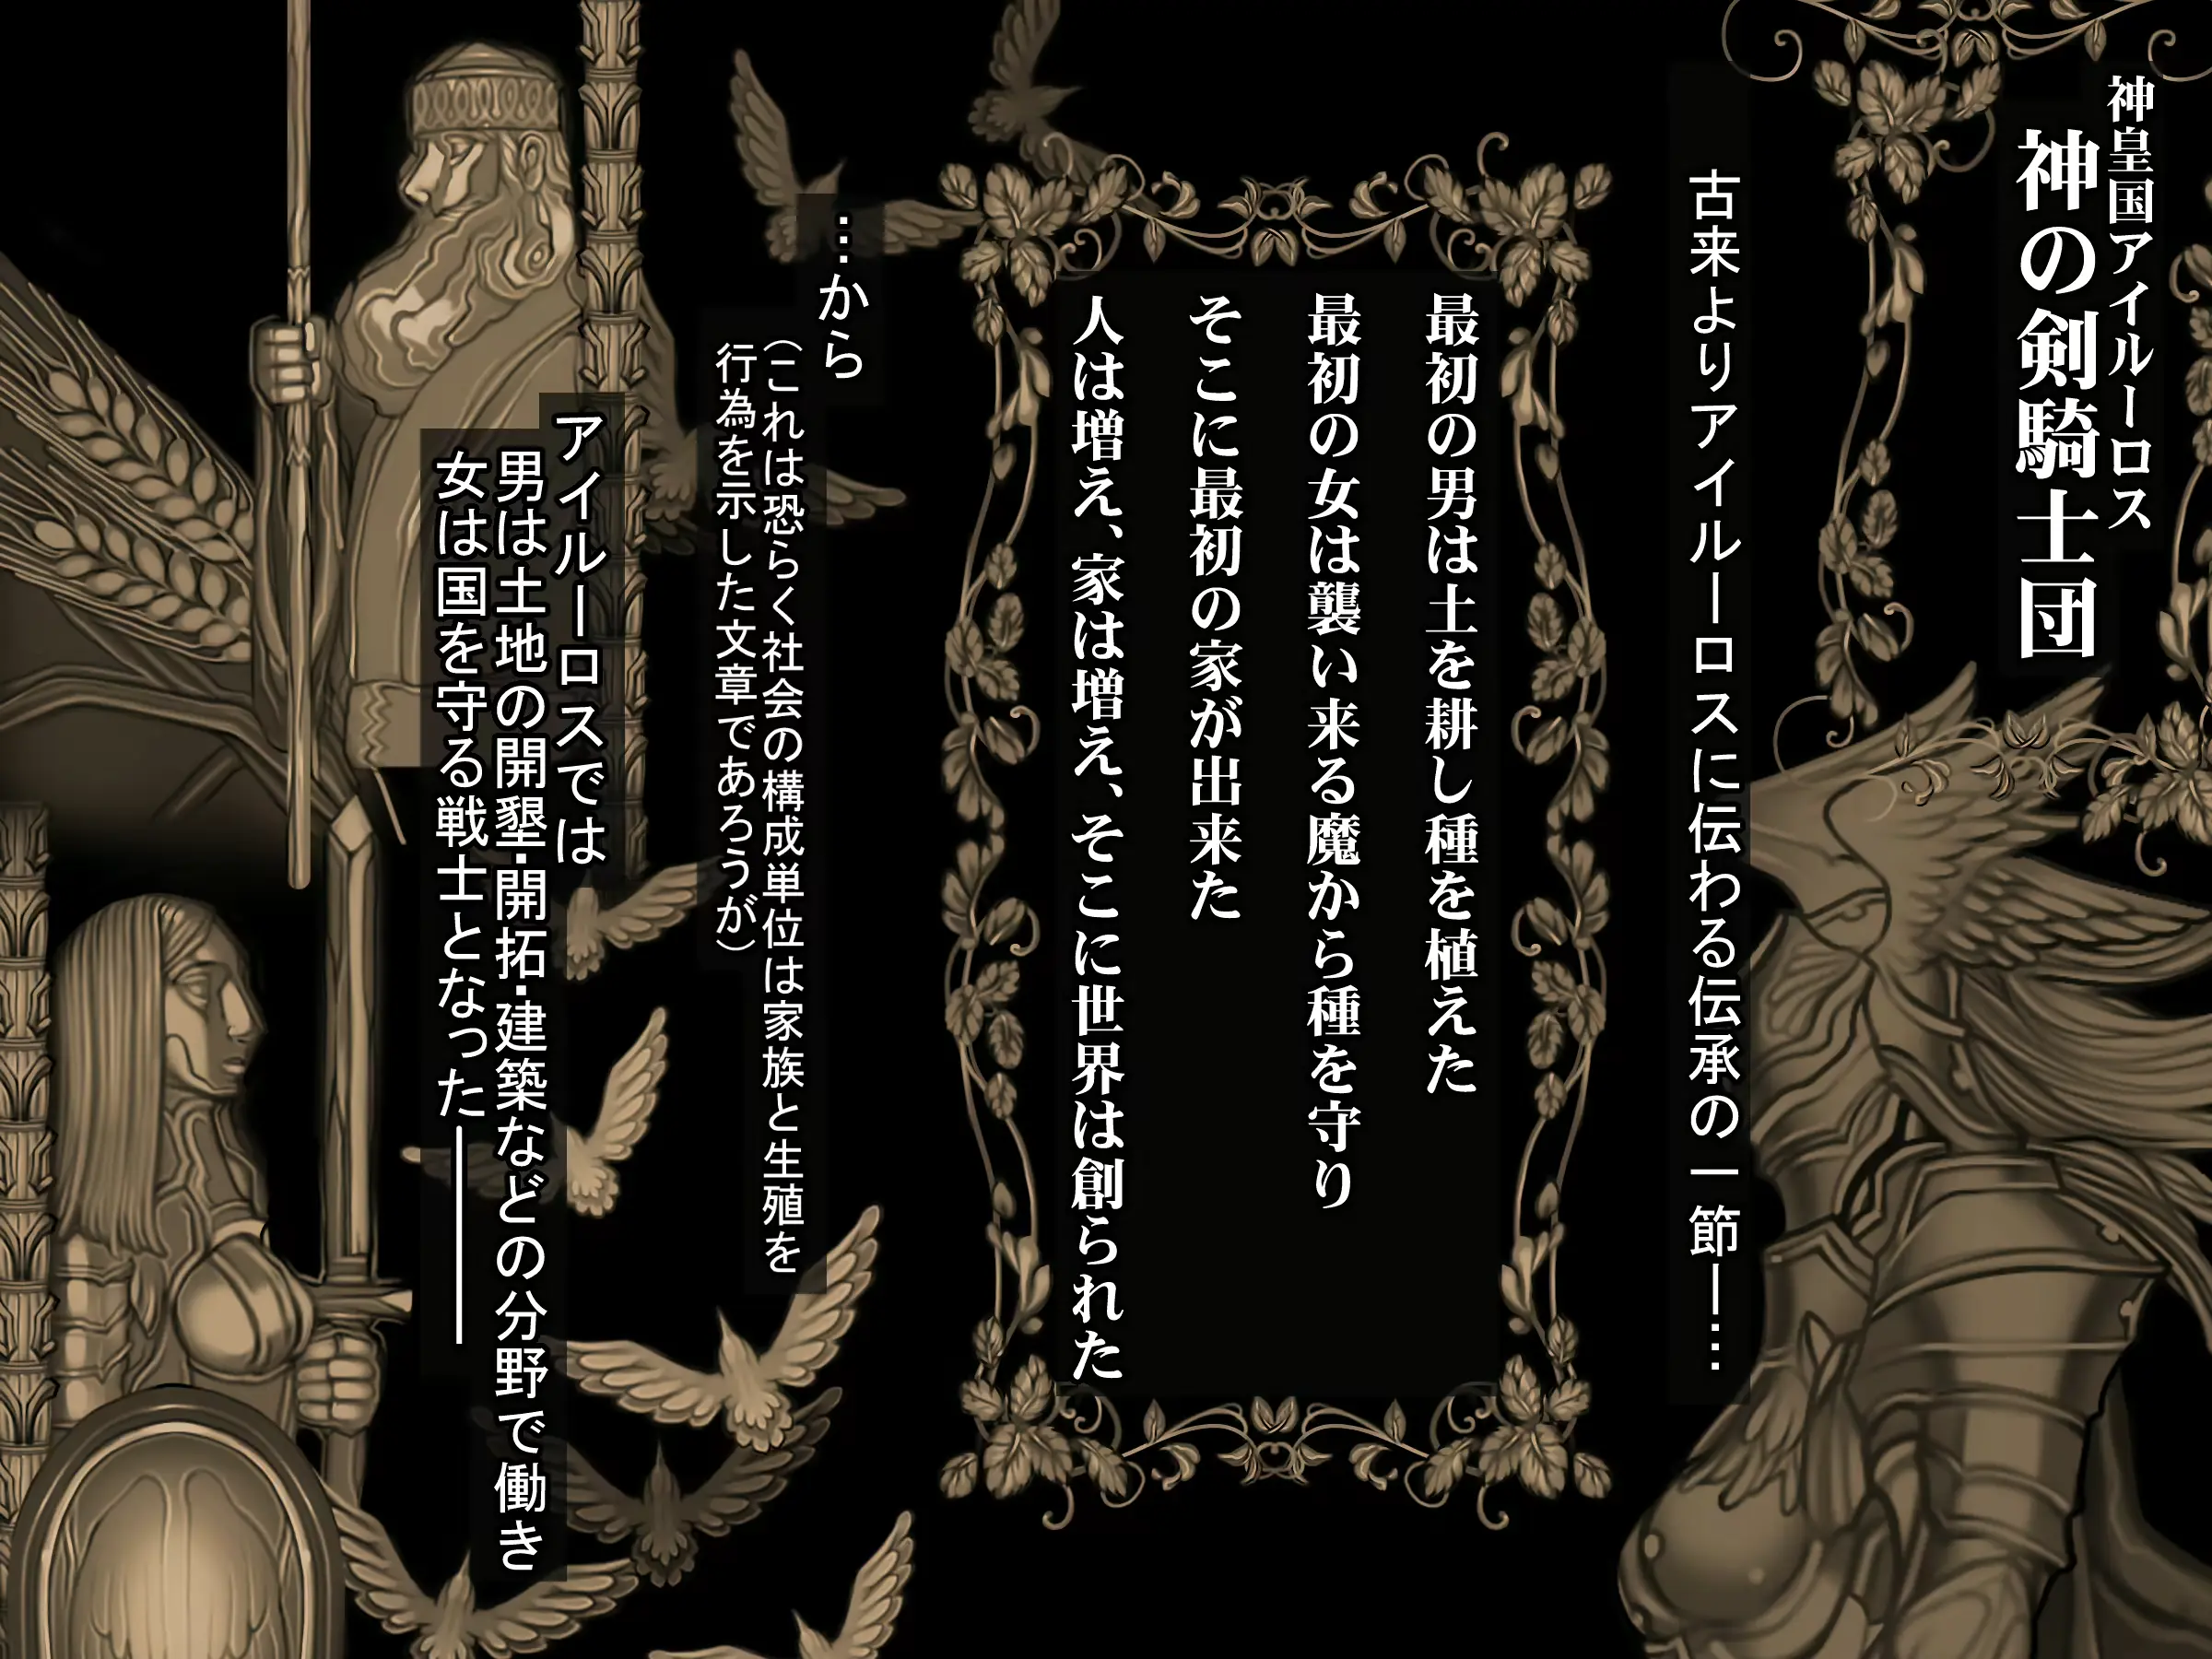 神皇国アイルーロス
神の剣騎士団
古来よりアイルーロスに伝わる伝承の一節―…
最初の男は土を耕し種を植えた
最初の女は襲い来る魔から種を守り
そこに最初の家が出来た
人は増え、家は増え、そこに世界は創られた
…から
（これは恐らく社会の構成単位は家族と生殖を
行為を示した文章であろうが）
アイルーロスでは
男は土地の開墾・開拓・建築などの分野で働き
女は国を守る戦士となった――